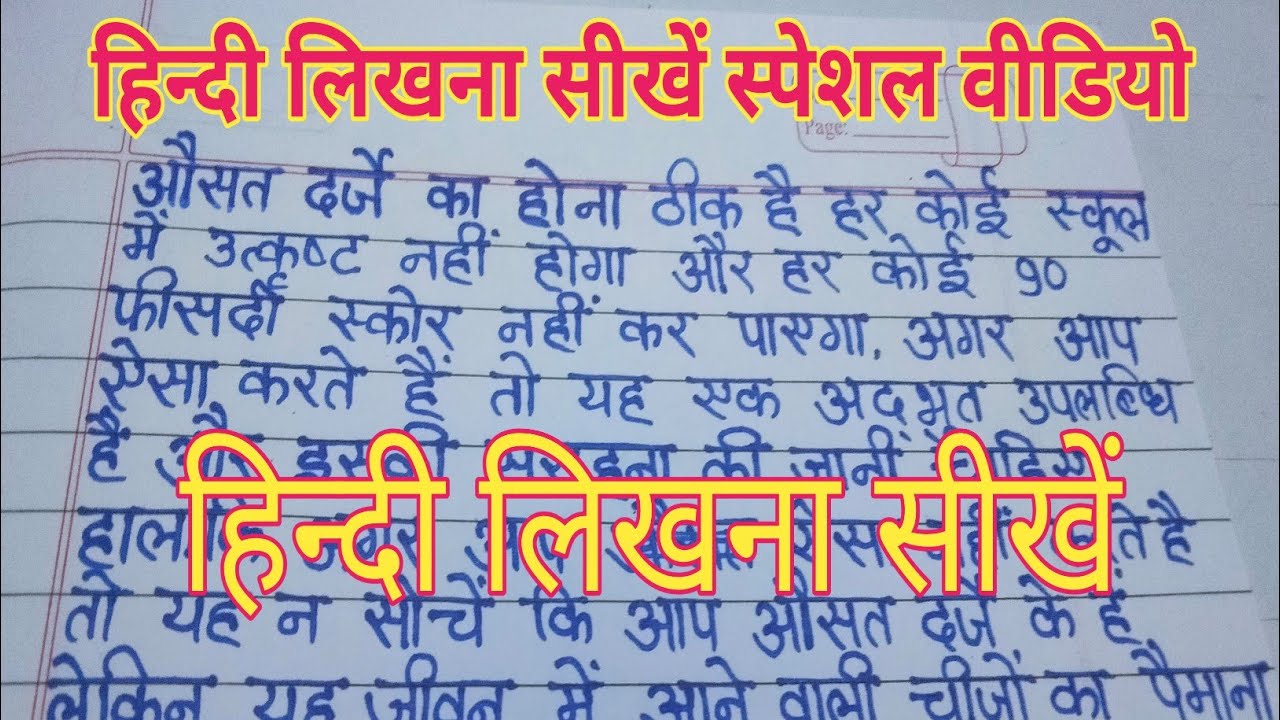 हिन्दी लिखना सीखें स्पेशल वीडियो
Page:
औसत दर्जे का होना ठीक है हर कोई स्कूल
में उत्कष्ट नहीं होगा और हर कोई 90
फीसदी स्कोर नहीं कर पाएगा. अगर आप
ऐसा करते हैं तो यह एक अद्भूत उपलब्धि
है और इसकी सराहना की जानी चाहिए
हिन्दी लिखना सीखें
हालांकि अगर आप ऐसा नहीं करते है
तो यह न सोचें कि आप औसत दर्जे के हैं
लेकिन यह जीवन में आने वाली चीजों का पैमाना